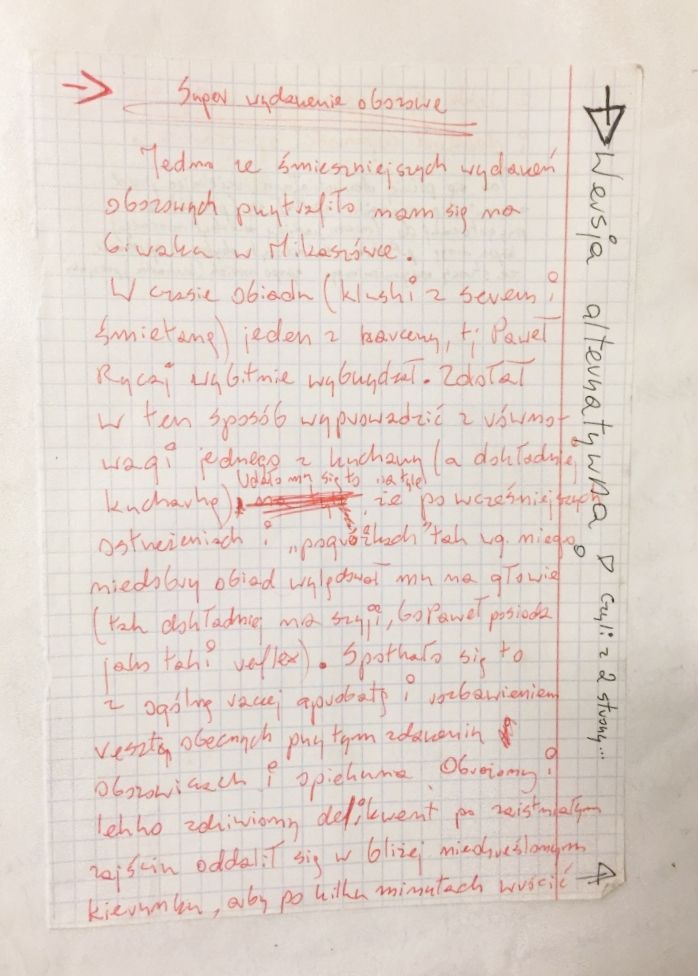 → Super wydarzenie obozowe
Jedno ze śmieszniejszych wydarzeń
obozowych przytrafiło nam się na
biwaku w Mikaszówce.
W czasie obiadu (kluski z serem i
śmietaną) jeden z harcerzy, tj Paweł
Rycaj wybitnie wybrzydzał. Zdołał
w ten sposób wyprowadzić z równo-
wagi jednego z kucharzy (a dokładniej
kucharkę) udało mu się to na tyle
, że po wcześniejszych
ostrzeżeniach i „pogróżkach" tak wg. niego
niedobry obiad wylądował mu na głowie
(tak dokładniej na szyji, bo Paweł posiada
jako taki reflex). Spotkało się to
z ogólną raczej aprobatą i rozbawieniem
reszty obecnych przy tym zdarzeniu
obozowiczach i opiekuna. Obrażony i
lekko zdziwiony delikwent po zaistniałym
zajściu oddalił się w bliżej nieokreślonym
kierunku, aby po kilku minutach wrócić
→ Wersja alternatywna czyli z 2 strony...